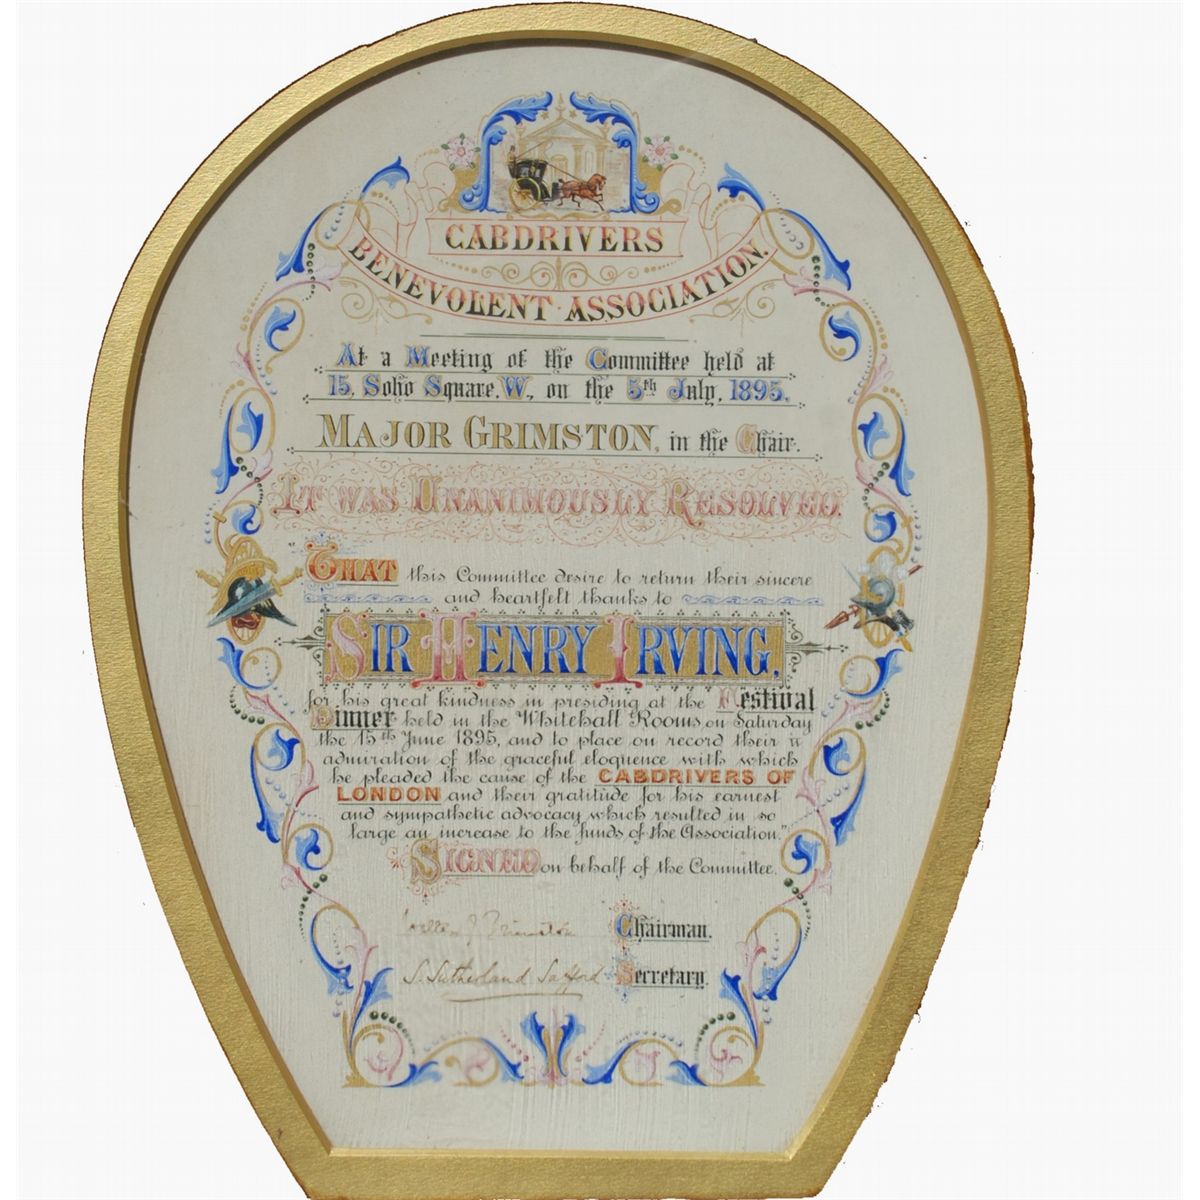 CABDRIVERS
BENEVOLENT · ASSOCIATION.
At a Meeting of the Committee held at
15, Soho Square, W., on the 5th July, 1895,
MAJOR GRIMSTON, in the Chair.
IT WAS UNANIMOUSLY RESOLVED.
"THAT this Committee desire to return their sincere
and heartfelt thanks to
SIR HENRY IRVING,
for his great kindness in presiding at the Festival
Dinner held in the Whitehall Rooms on Saturday
the 15th June 1895, and to place on record their
admiration of the graceful eloquence with which
he pleaded the cause of the CABDRIVERS OF
LONDON and their gratitude for his earnest
and sympathetic advocacy which resulted in so
large an increase to the funds of the Association."
SIGNED on behalf of the Committee.
Grimston Chairman.
S. Sutherland Safford Secretary.